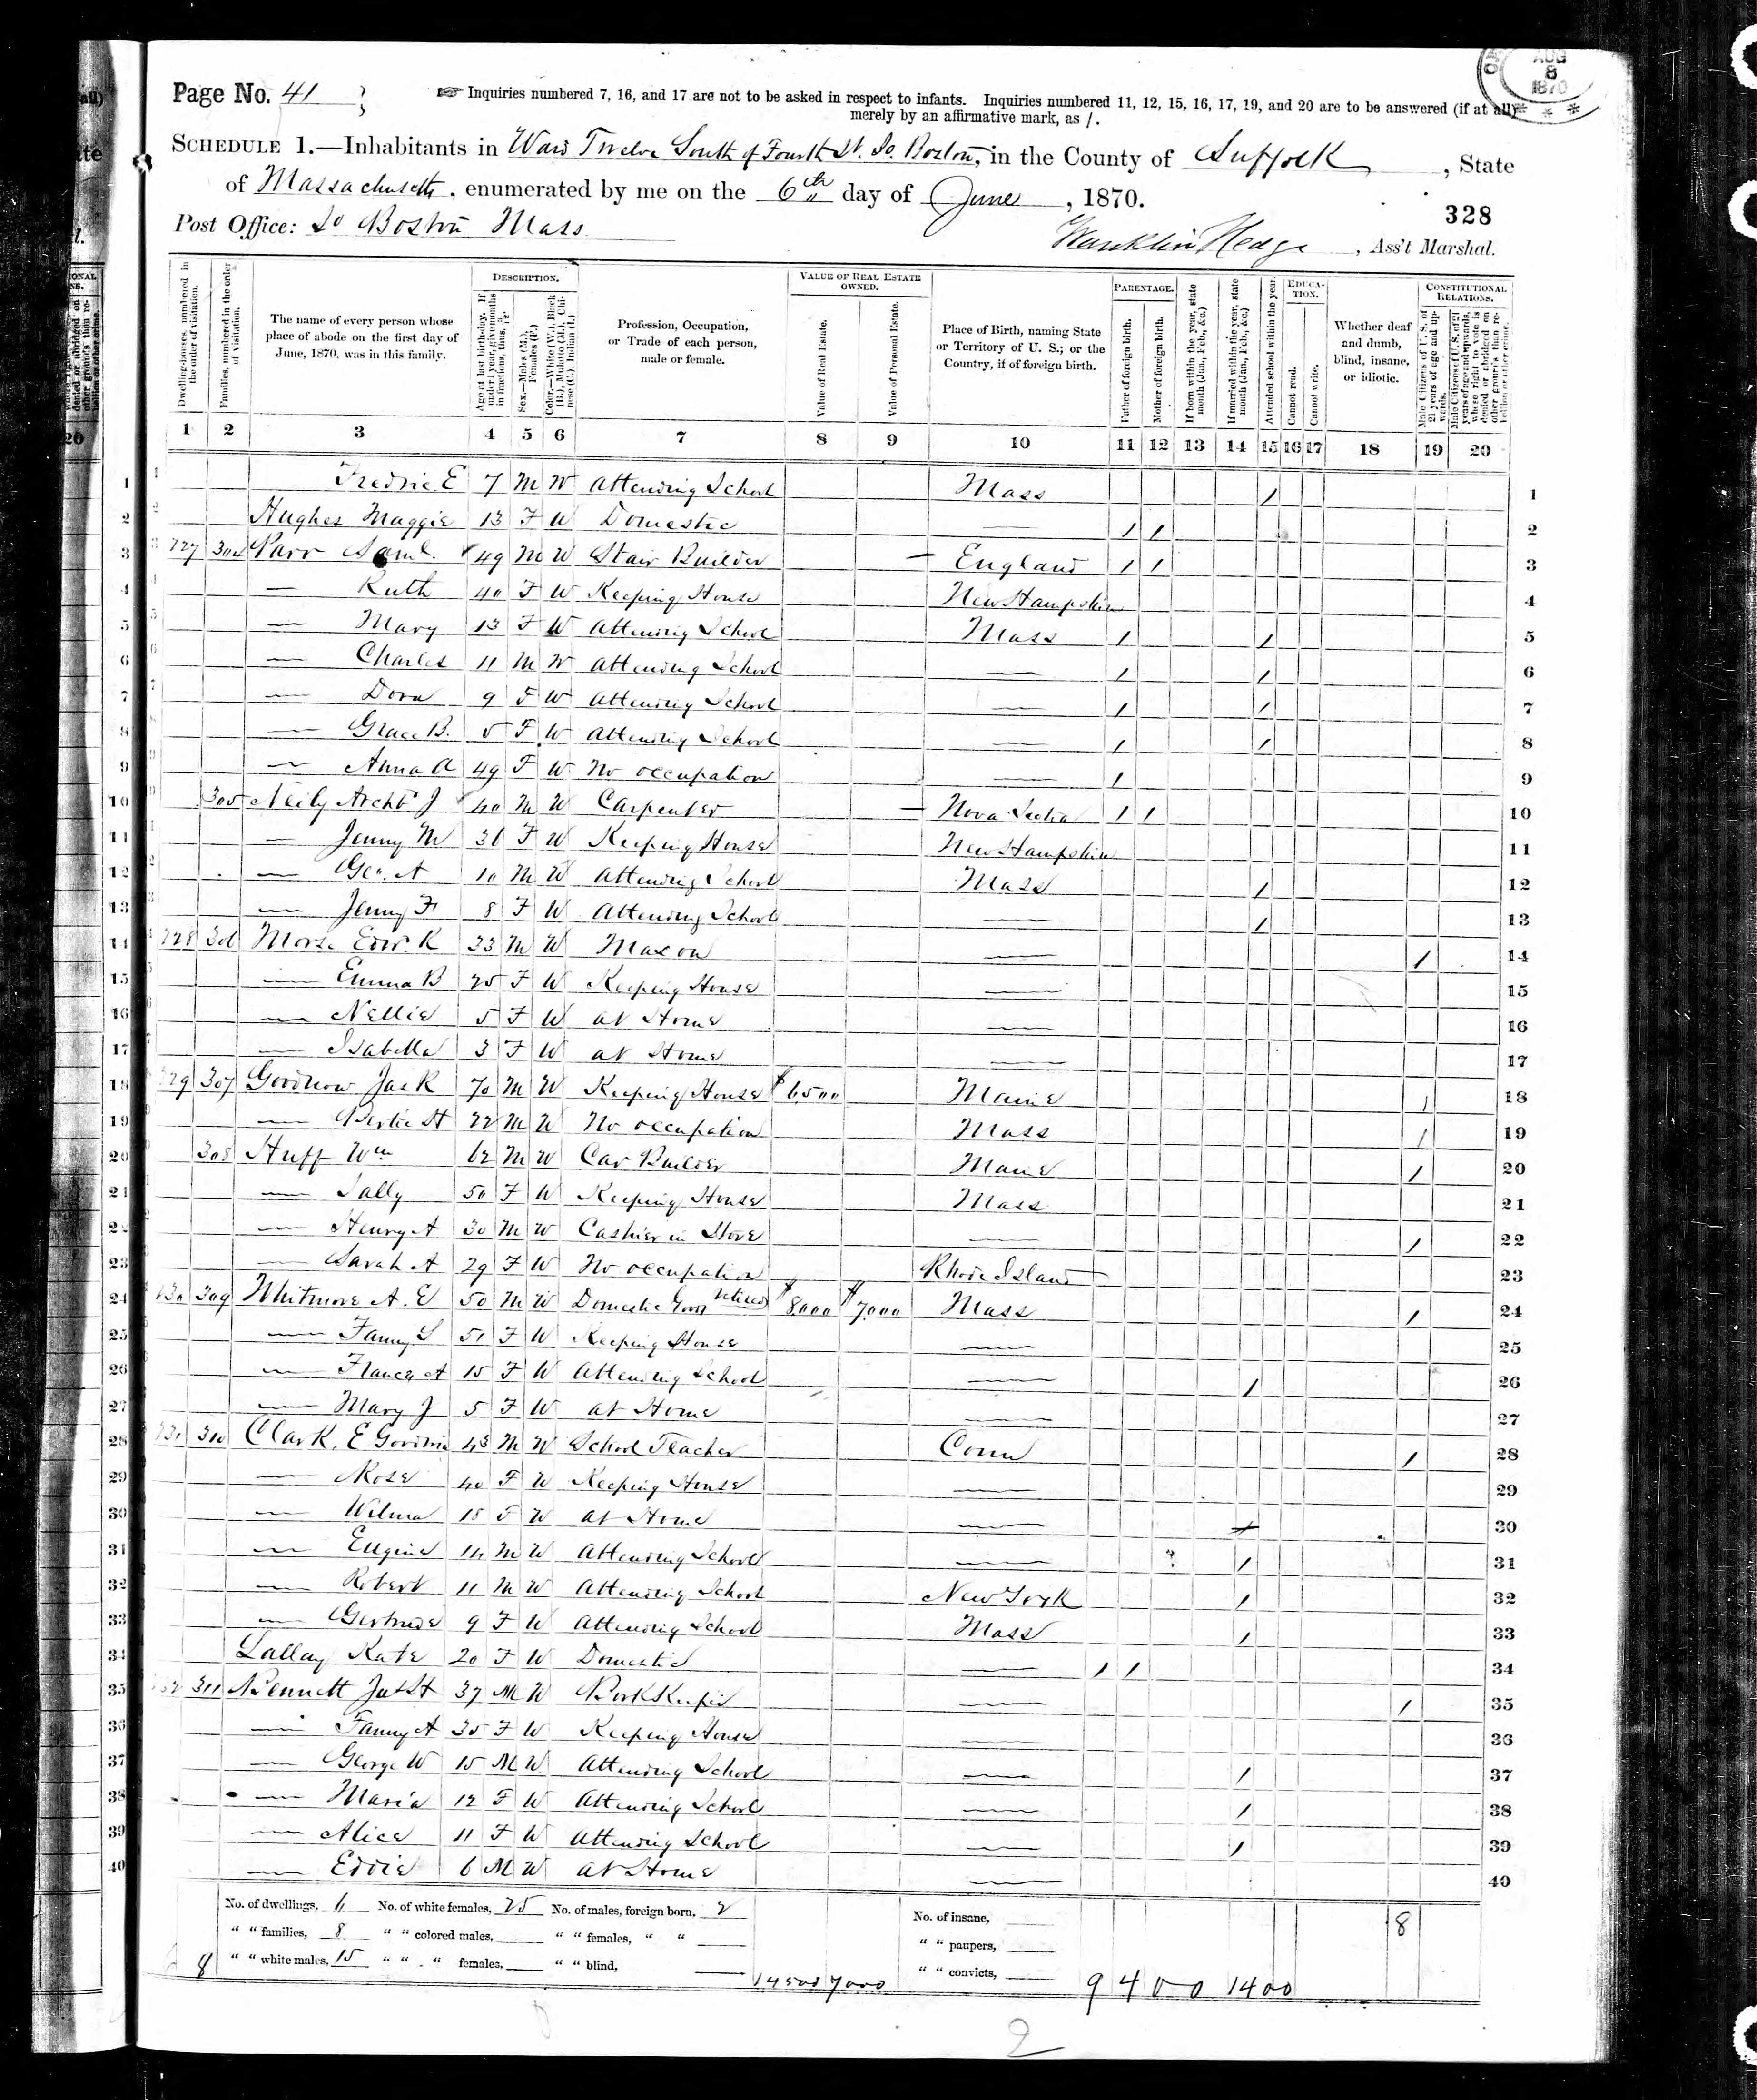 Page No. 41
☞ Inquiries numbered 7, 16, and 17 are not to be asked in respect to infants. Inquiries numbered 11, 12, 15, 16, 17, 19, and 20 are to be answered (if at all)
merely by an affirmative mark, as /.
AUG
8
1870
SCHEDULE 1.—Inhabitants in Ward Twelve South of Fourth St. So. Boston, in the County of Suffolk, State
of Massachusetts, enumerated by me on the 6th day of June, 1870.
328
Post Office: So Boston Mass
Franklin Hedge, Ass't Marshal.
Dwelling-houses, numbered in the order of visitation.
Families, numbered in the order of visitation.
The name of every person whose place of abode on the first day of June, 1870, was in this family.
DESCRIPTION.
Age at last birth-day. If under 1 year, give months in fractions, thus, 3/12.
Sex.—Males (M.), Females (F.)
Color.—White (W.), Black (B.), Mulatto (M.), Chinese (C.), Indian (I.)
Profession, Occupation, or Trade of each person, male or female.
VALUE OF REAL ESTATE OWNED.
Value of Real Estate.
Value of Personal Estate.
Place of Birth, naming State or Territory of U. S.; or the Country, if of foreign birth.
PARENTAGE.
Father of foreign birth.
Mother of foreign birth.
If born within the year, state month (Jan., Feb., &c.)
If married within the year, state month (Jan., Feb., &c.)
Attended school within the year.
EDUCATION.
Cannot read.
Cannot write.
Whether deaf and dumb, blind, insane, or idiotic.
CONSTITUTIONAL RELATIONS.
Male Citizens of U. S. of 21 years of age and upwards.
Male Citizens of U. S. of 21 years of age and upwards, whose right to vote is denied or abridged on other grounds than rebellion or other crime.
1 2 3 4 5 6 7 8 9 10 11 12 13 14 15 16 17 18 19 20
1 Fredric E 7 M W Attending School Mass / 1
2 Hughes Maggie 13 F W Domestic — / / 2
3 727 304 Parr Saml. 49 M W Stair Builder — England / / 3
4 — Ruth 40 F W Keeping House New Hampshire 4
5 — Mary 13 F W Attending School Mass / / 5
6 — Charles 11 M W Attending School — / / 6
7 — Dora 9 F W Attending School — / / 7
8 — Grace B. 5 F W Attending School — / / 8
9 — Anna A 49 F W No occupation — / 9
10 305 Neily Archd J 40 M W Carpenter — Nova Scotia / / 10
11 — Jenny M 36 F W Keeping House New Hampshire 11
12 — Geo. A 10 M W Attending School Mass / 12
13 — Jenny F 8 F W Attending School — / 13
14 728 306 Morse Edw. K 33 M W Mason — / 14
15 — Emma B 25 F W Keeping House — 15
16 — Nellie 5 F W at Home — 16
17 — Isabella 3 F W at Home — 17
18 729 307 Goodnow Jas R 70 M W Keeping House $6500 Maine / 18
19 — Bertie H 22 M W No occupation Mass / 19
20 308 Huff Wm 62 M W Car Builder Maine / 20
21 — Sally 50 F W Keeping House Mass 21
22 — Henry A 30 M W Cashier in Store — / 22
23 — Sarah A 29 F W No occupation Rhode Island 23
24 730 309 Whitmore A. E 50 M W Domestic Goods retired $8000 $7000 Mass / 24
25 — Fanny S 51 F W Keeping House — 25
26 — Frances A 15 F W Attending School — / 26
27 — Mary J 5 F W at Home — 27
28 731 310 Clark, E Goodwin 43 M W School Teacher Conn / 28
29 — Rose 40 F W Keeping House — 29
30 — Wilma 18 F W at Home — 30
31 — Eugene 14 M W Attending School — / 31
32 — Robert 11 M W Attending School New York / 32
33 — Gertrude 9 F W Attending School Mass / 33
34 Lallay Kate 20 F W Domestic — / / 34
35 732 311 Bennett Jas H 37 M W Book Keeper — / 35
36 — Fanny A 35 F W Keeping House — 36
37 — George W 15 M W Attending School — / 37
38 — Maria 12 F W Attending School — / 38
39 — Alice 11 F W Attending School — / 39
40 — Eddie 6 M W at Home — 40
No. of dwellings, 6 No. of white females, 25 No. of males, foreign born, 2 No. of insane, 18
" " families, 8 " " colored males, " " females, " " " " paupers,
8 " " white males, 15 " " " females, " " blind, 14500 7000 " " convicts, 9 4 0 0 14 00
2